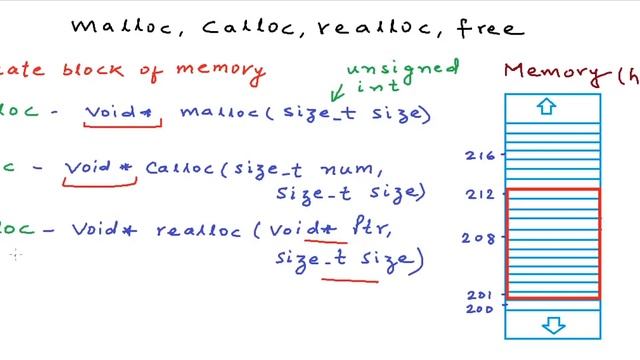 malloc, calloc, realloc, free
ate block of memory
unsigned
int
Memory (h
loc - void* malloc(size_t size)
c - void* calloc(size_t num,
size_t size)
loc - void* realloc (void* Ptr,
size_t size)
216
212
208
201
200